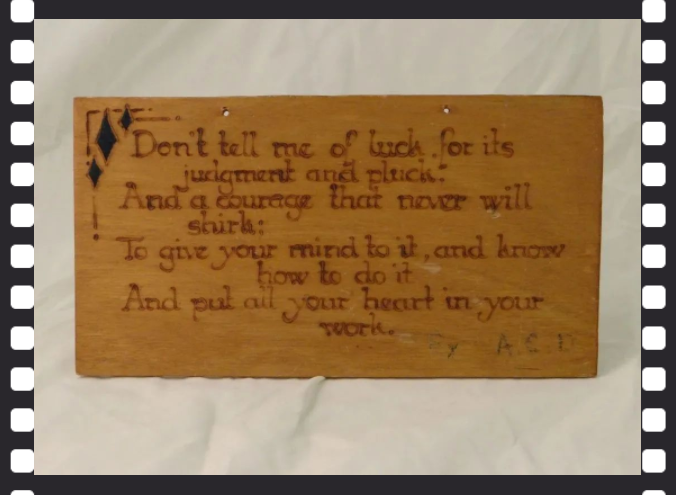 Don't tell me of luck for its
judgment and pluck:
And a courage that never will
shirk:
To give your mind to it, and know
how to do it
And put all your heart in your
work.
By A.C.D